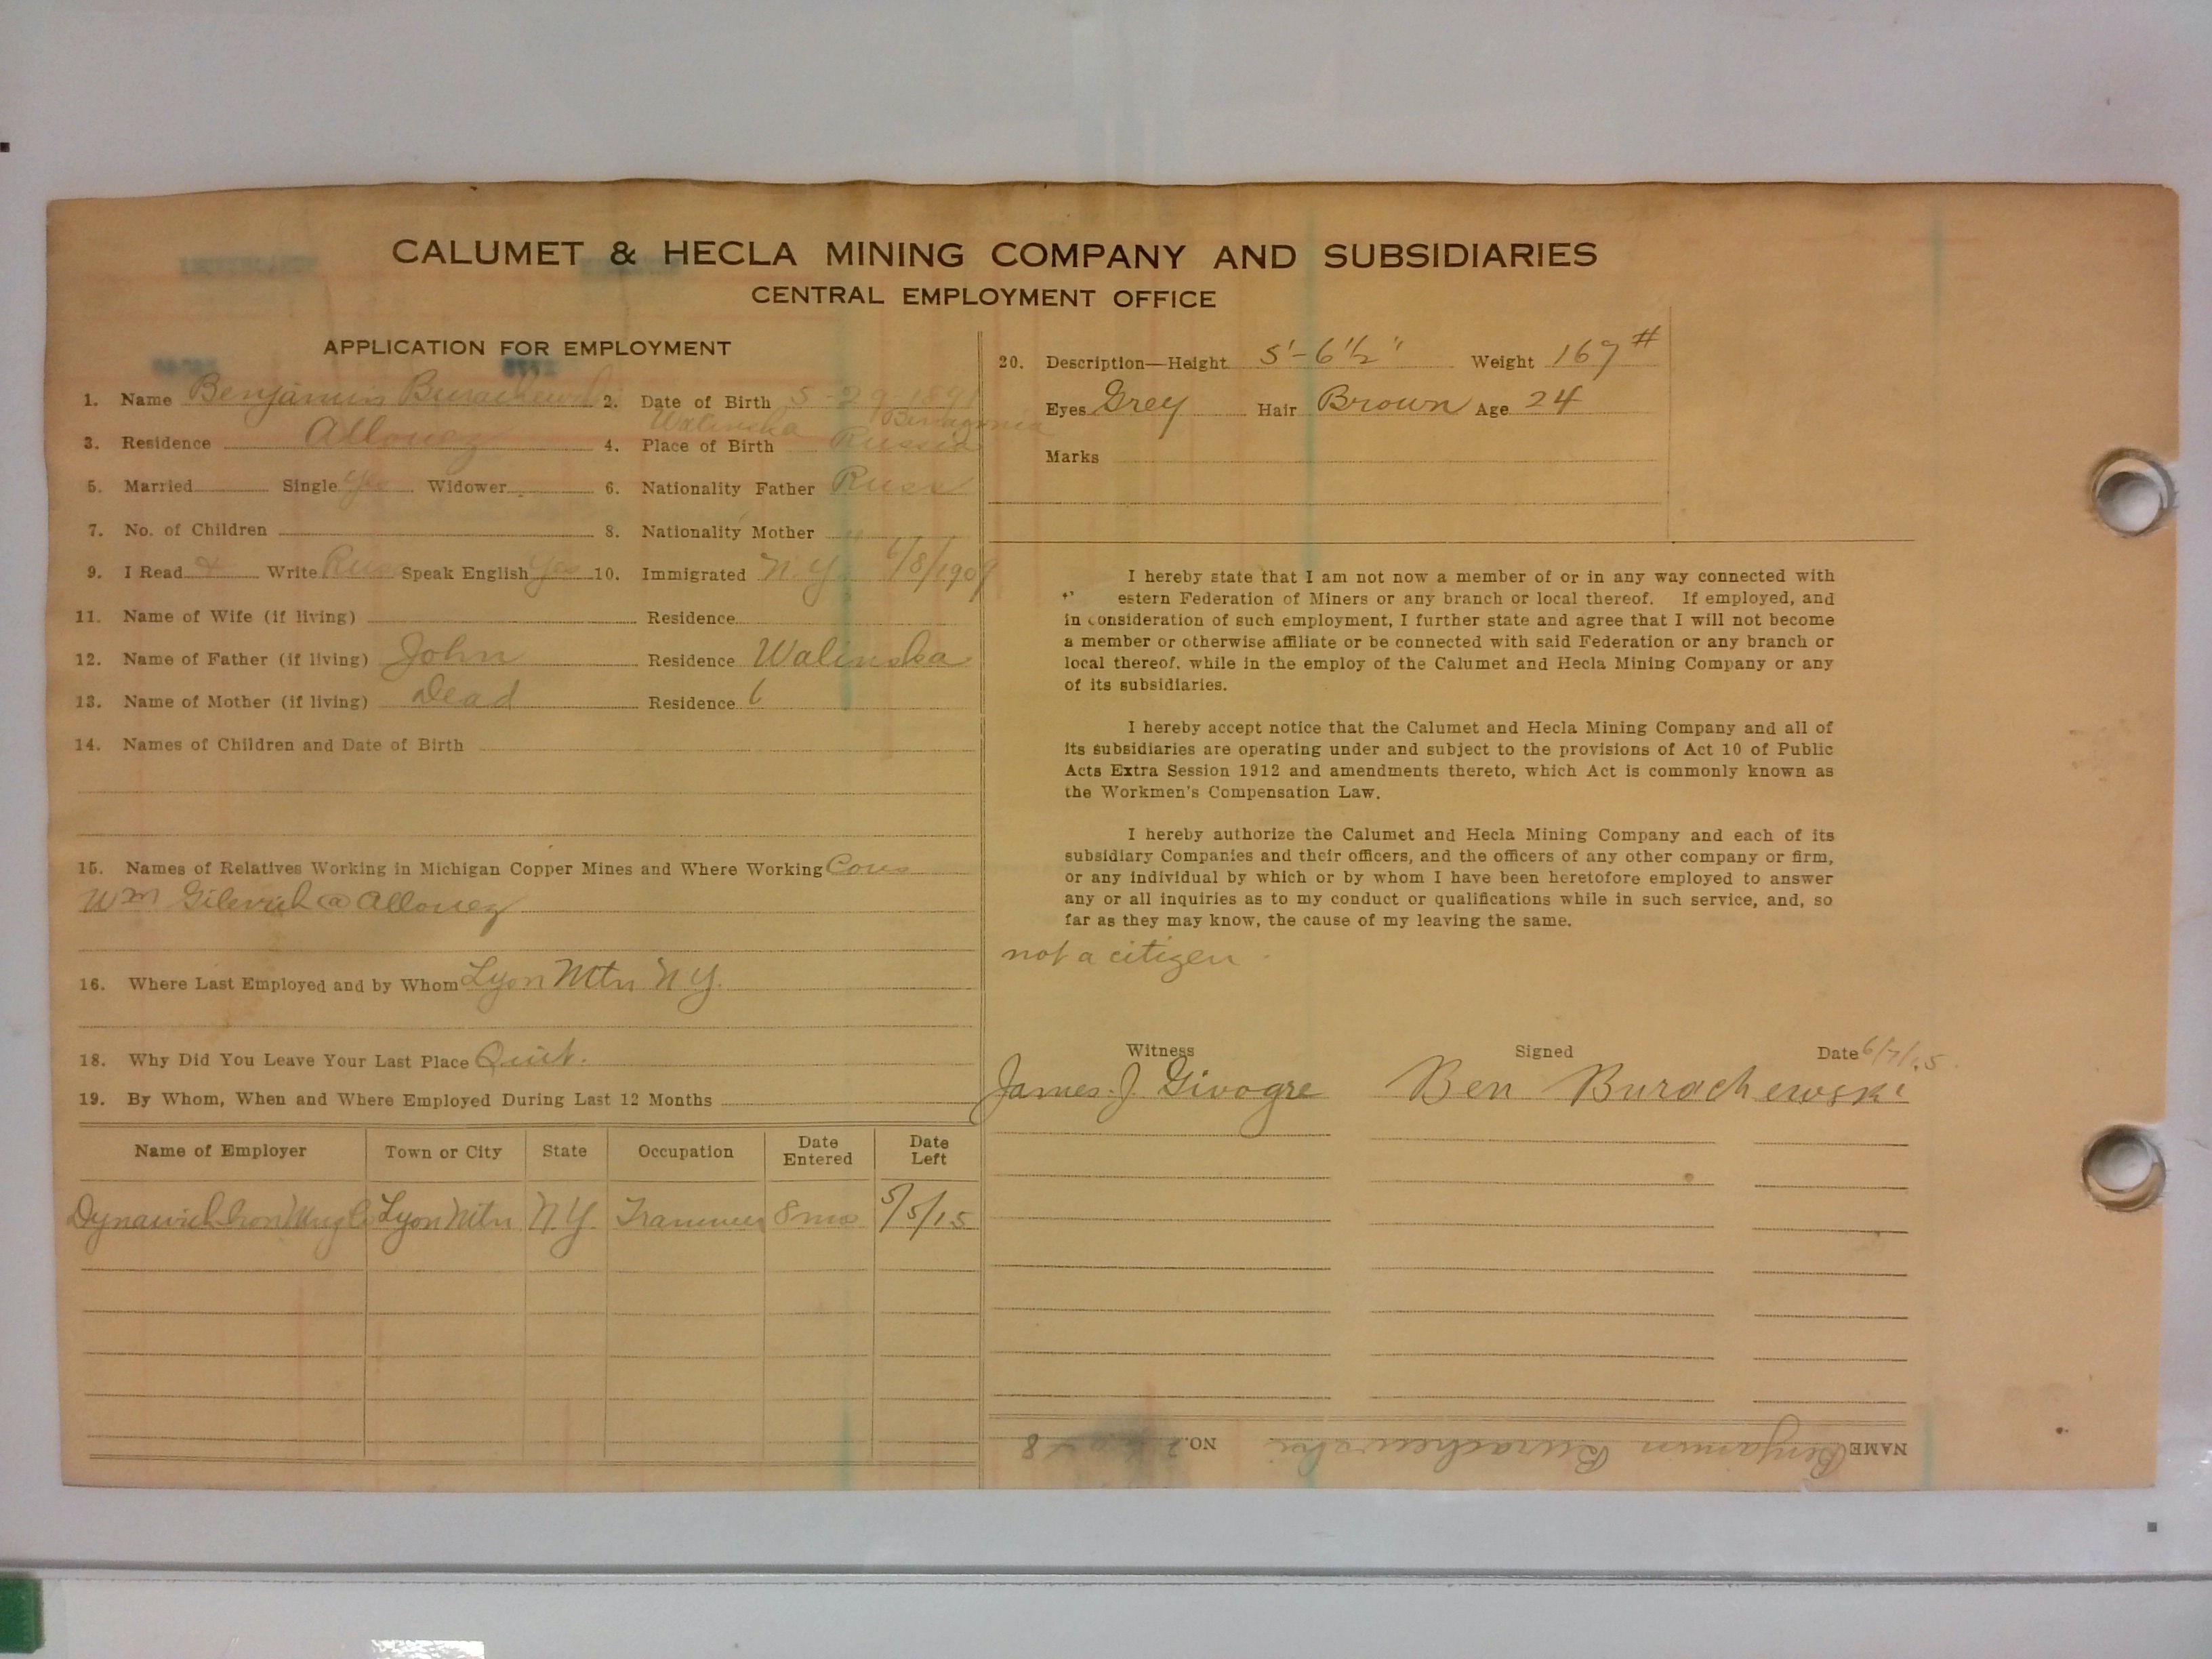 CALUMET & HECLA MINING COMPANY AND SUBSIDIARIES
CENTRAL EMPLOYMENT OFFICE
APPLICATION FOR EMPLOYMENT
1. Name Benjamin Burachewski 2. Date of Birth 5-29-1891
Walinska
3. Residence Allouez 4. Place of Birth Russia
5. Married Single Yes Widower 6. Nationality Father Russ
7. No. of Children 8. Nationality Mother "
9. I Read & Write Russ Speak English Yes 10. Immigrated N.Y. /8/1909
11. Name of Wife (if living) Residence
12. Name of Father (if living) John Residence Walinska
13. Name of Mother (if living) Dead Residence
14. Names of Children and Date of Birth
15. Names of Relatives Working in Michigan Copper Mines and Where Working Cous
Wm Gilevich @ Allouez
16. Where Last Employed and by Whom Lyon Mtn N.Y.
18. Why Did You Leave Your Last Place Quit.
19. By Whom, When and Where Employed During Last 12 Months
Name of Employer Town or City State Occupation Date Entered Date Left
Lyon Mtn N.Y. Trammer 8 mos 5/5/15
20. Description—Height 5'-6½" Weight 167#
Eyes Grey Hair Brown Age 24
Marks
I hereby state that I am not now a member of or in any way connected with
estern Federation of Miners or any branch or local thereof. If employed, and
in consideration of such employment, I further state and agree that I will not become
a member or otherwise affiliate or be connected with said Federation or any branch or
local thereof, while in the employ of the Calumet and Hecla Mining Company or any
of its subsidiaries.
I hereby accept notice that the Calumet and Hecla Mining Company and all of
its subsidiaries are operating under and subject to the provisions of Act 10 of Public
Acts Extra Session 1912 and amendments thereto, which Act is commonly known as
the Workmen's Compensation Law.
I hereby authorize the Calumet and Hecla Mining Company and each of its
subsidiary Companies and their officers, and the officers of any other company or firm,
or any individual by which or by whom I have been heretofore employed to answer
any or all inquiries as to my conduct or qualifications while in such service, and, so
far as they may know, the cause of my leaving the same.
not a citizen
Witness Signed Date 6/7/15
James J Givogre Ben Burachewski
NAME Benjamin Burachewski NO.